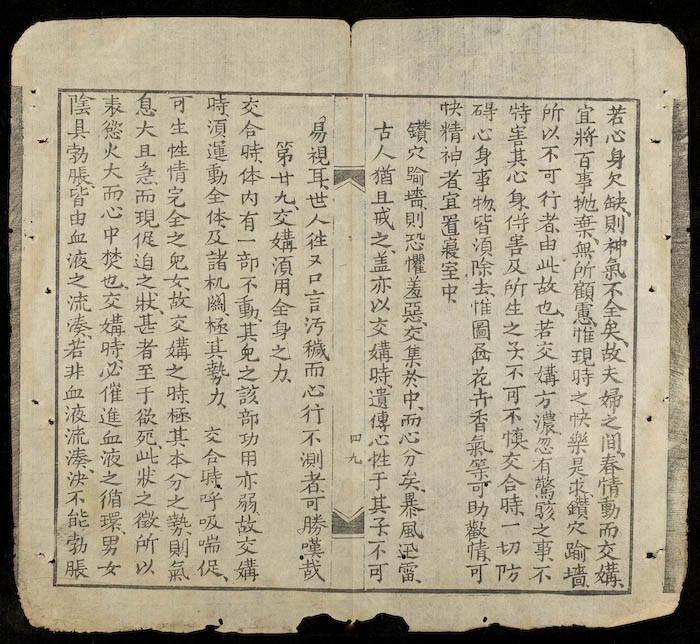 若心身欠缺、則神氣不全矣、故夫婦之間、春情動而交媾、
宜將百事抛棄、無所顧慮、惟現時之快樂是求、鑽穴踰墻、
所以不可行者、由此故也、若交媾方濃、忽有驚駭之事、不
特害其心身、併害及所生之子、不可不慎、交合時、一切防
碍心身事物、皆須除去、惟圖畫花卉香氣等、可助歡情、可
快精神者、宜置寢室中、
鑽穴踰墻、則恐懼羞惡、交集於中、而心分矣、暴風迅雷、
古人猶且戒之、盖亦以交媾時、遺傳心性于其子、不可
四九
易視耳、世人徃又口言汚穢、而心行不測者、可勝嘆哉
第廿九、交媾須用全身之力、
交合時、体内有一部不動、其兒之該部功用亦弱、故交媾
時、須運動全体、及諸机關、極其勢力、 交合時、呼吸喘促、
可生性情完全之兒女、故交媾之時、極其本分之勢、則氣
息大且急、而現促迫之狀、甚者至于欲死、此狀之徵、所以
表慾火大而心中焚也、交媾時、必催進血液之循環、男女
陰具勃脹、皆由血液之流湊、若非血液流湊、決不能勃脹